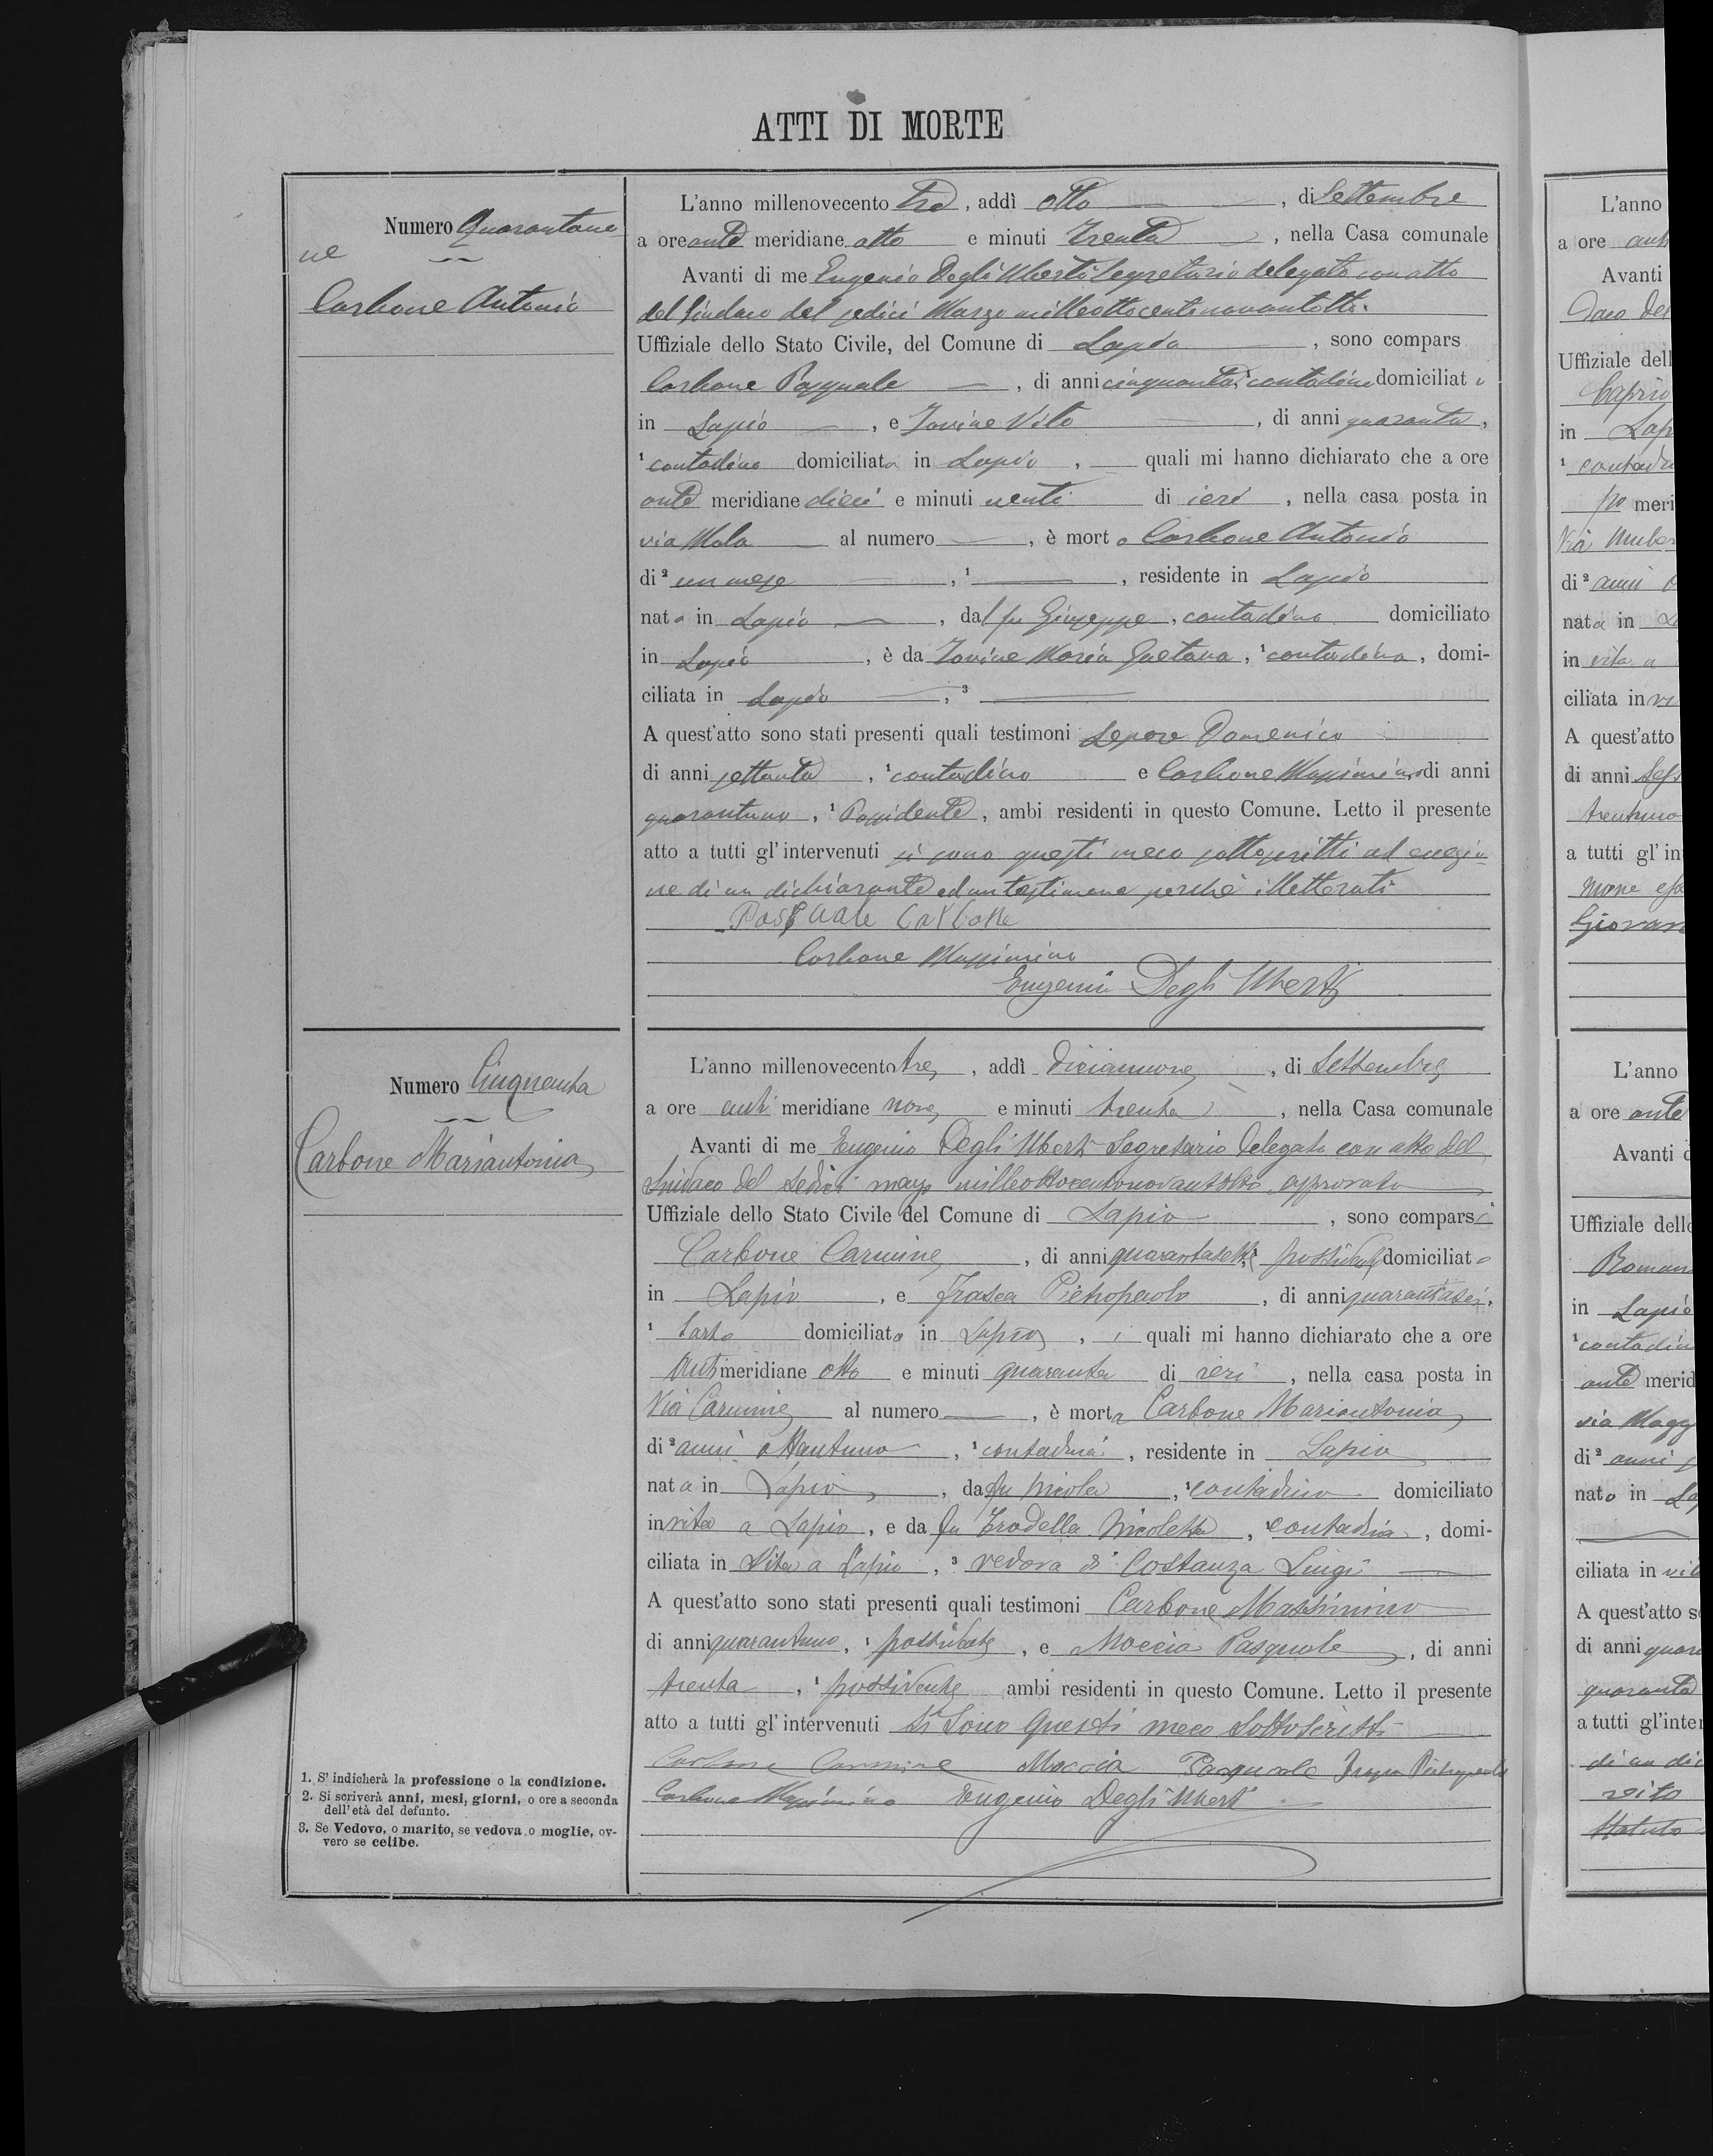 ATTI DI MORTE
Numero Quarantano
ve
Carbone Antonio
L'anno millenovecento tre, addì otto, di Settembre
a ore ante meridiane otto e minuti trenta, nella Casa comunale
Avanti di me Eugenio Degli Uberti Segretario delegato con atto
del Sindaco del sedici Marzo milleottocentonovantotto.
Uffiziale dello Stato Civile, del Comune di Lapio, sono compars
Carbone Pasquale, di anni cinquanta, contadino domiciliato
in Lapio, e Iovine Vito, di anni quaranta,
1 contadino domiciliato in Lapio, quali mi hanno dichiarato che a ore
ante meridiane dieci e minuti venti di ieri, nella casa posta in
via Mola al numero, è morto Carbone Antonio
di 2 un mese, 1, residente in Lapio
nato in Lapio, dal fu Giuseppe, contadino domiciliato
in Lapio, è da Iovine Maria Gaetana, 1 contadina, domi-
ciliata in Lapio, 3
A quest'atto sono stati presenti quali testimoni Lepore Domenico
di anni settanta, 1 contadino e Carbone Massimino, di anni
quarantuno, 1 Possidente, ambi residenti in questo Comune. Letto il presente
atto a tutti gl'intervenuti si sono questi meco sottoscritti ad eccezio
ne di un dichiarante ed un testimone perchè illetterati
Pasquale Carbone
Carbone Massimino
Eugenio Degli Uberti
Numero Cinquanta
Carbone Mariantonia
L'anno millenovecento tre, addì diciannove, di Settembre
a ore anti meridiane nove e minuti trenta, nella Casa comunale
Avanti di me Eugenio Degli Uberti Segretario delegato con atto del
Sindaco del sedici marzo milleottocentonovantotto approvato
Uffiziale dello Stato Civile del Comune di Lapio, sono comparsi
Carbone Carmine, di anni quarantasette, possidente domiciliato
in Lapio, e Frasca Pietropaolo, di anni quarantasei,
1 sarto domiciliato in Lapio, i quali mi hanno dichiarato che a ore
anti meridiane otto e minuti quaranta di ieri, nella casa posta in
Via Carmine al numero, è morta Carbone Mariantonia
di 2 anni ottantuno, 1 contadina, residente in Lapio
nata in Lapio, da fu Nicola, 1 contadino domiciliato
in vita a Lapio, e da fu Trodella Nicoletta, 1 contadina, domi-
ciliata in vita a Lapio, 3 vedova di Costanza Luigi
A quest'atto sono stati presenti quali testimoni Carbone Massimino
di anni quarantuno, 1 possidente, e Moccia Pasquale, di anni
trenta, 1 possidente ambi residenti in questo Comune. Letto il presente
atto a tutti gl'intervenuti si sono questi meco sottoscritti
Carbone Carmine Moccia Pasquale Frasca Pietropaolo
Carbone Massimino Eugenio Degli Uberti
1. S'indicherà la professione o la condizione.
2. Si scriverà anni, mesi, giorni, o ore a seconda
dell'età del defunto.
3. Se Vedovo, o marito, se vedova o moglie, ov-
vero se celibe.
L'anno
a ore
Avanti
Uffiziale dell
Caprio
in Lap
1 contadi
po meri
Via Umber
di 2 anni
nata in
in vita a
ciliata in vi
A quest'atto
di anni
trentuno
a tutti gl'in
Giovan
L'anno
a ore ante
Avanti d
Uffiziale dello
Roman
in Lapio
1 contadin
ante merid
via Magg
di 2 anni
nato in La
ciliata in vit
A quest'atto s
di anni quara
quaranta
a tutti gl'inter
di un dic
Vito